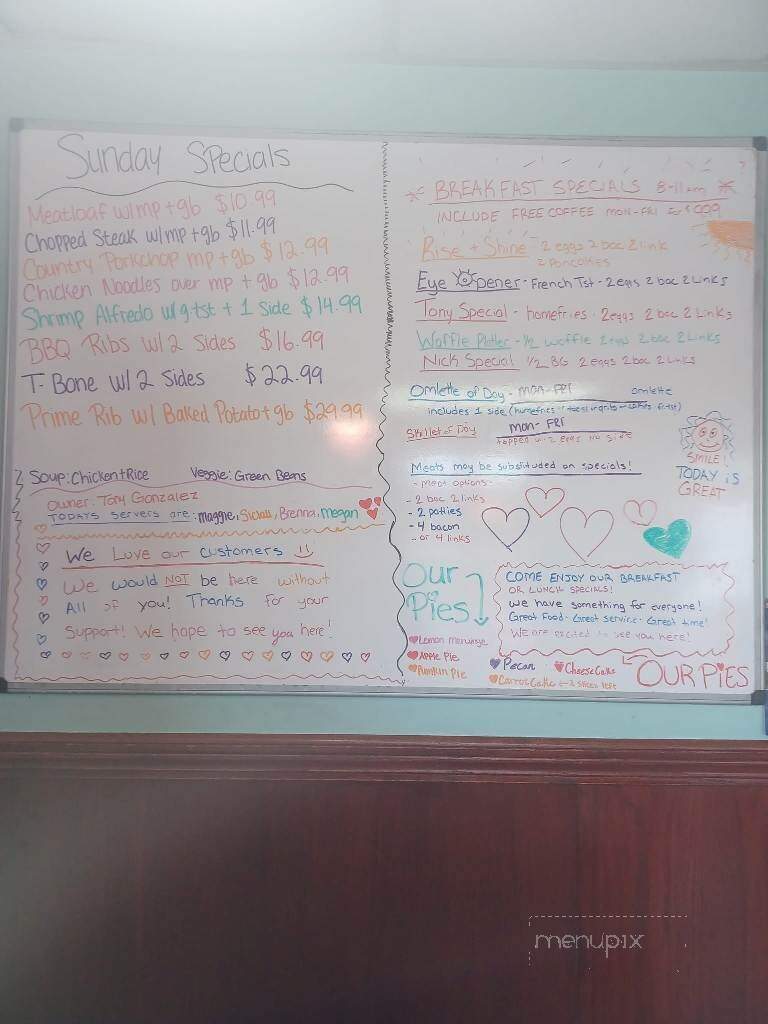 Sunday Specials
Meatloaf w/mp + gb $10.99
Chopped Steak w/mp + gb $11.99
Country Porkchop mp + gb $12.99
Chicken Noodles over mp + gb $12.99
Shrimp Alfredo w/g-tst + 1 Side $14.99
BBQ Ribs w/ 2 Sides $16.99
T-Bone w/ 2 Sides $22.99
Prime Rib w/ Baked Potato + gb $29.99
Soup: Chicken + Rice Veggie: Green Beans
Owner: Tony Gonzalez
TODAYS servers are: maggie, Brenna, megan
We Love our customers
We would NOT be here without
All of you! Thanks for your
Support! We hope to see you here!
BREAKFAST SPECIALS 8-11am
INCLUDE FREE COFFEE MON-FRI
Rise + Shine - 2 eggs 2 bac 2 link
2 pancakes
Eye Opener - French Tst - 2 eggs 2 bac 2 Links
Tony Special - homefries - 2 eggs 2 bac 2 Links
Waffle Platter - 1/2 waffle 2 eggs 2 bac 2 Links
Nick Special 1/2 BG 2 eggs 2 bac 2 Links
Omlette of Day - mon-FRI omlette
includes 1 side
Skillet of Day mon-FRI
topped w. 2 eggs no side
Meats may be substituded on specials!
- meat options -
- 2 bac 2 links
- 2 patties
- 4 bacon
- or 4 links
SMILE!
TODAY iS
GREAT
Our
Pies
COME ENJOY OUR BREAKFAST
OR LUNCH SPECIALS!
We have something for everyone!
Great Food - Great service - Great time!
We are excited to see you here!
Lemon meringe
Apple Pie
Pumkin Pie
Pecan
CheeseCake
CarrotCake ← 2 slices left
OUR PiES
menupix